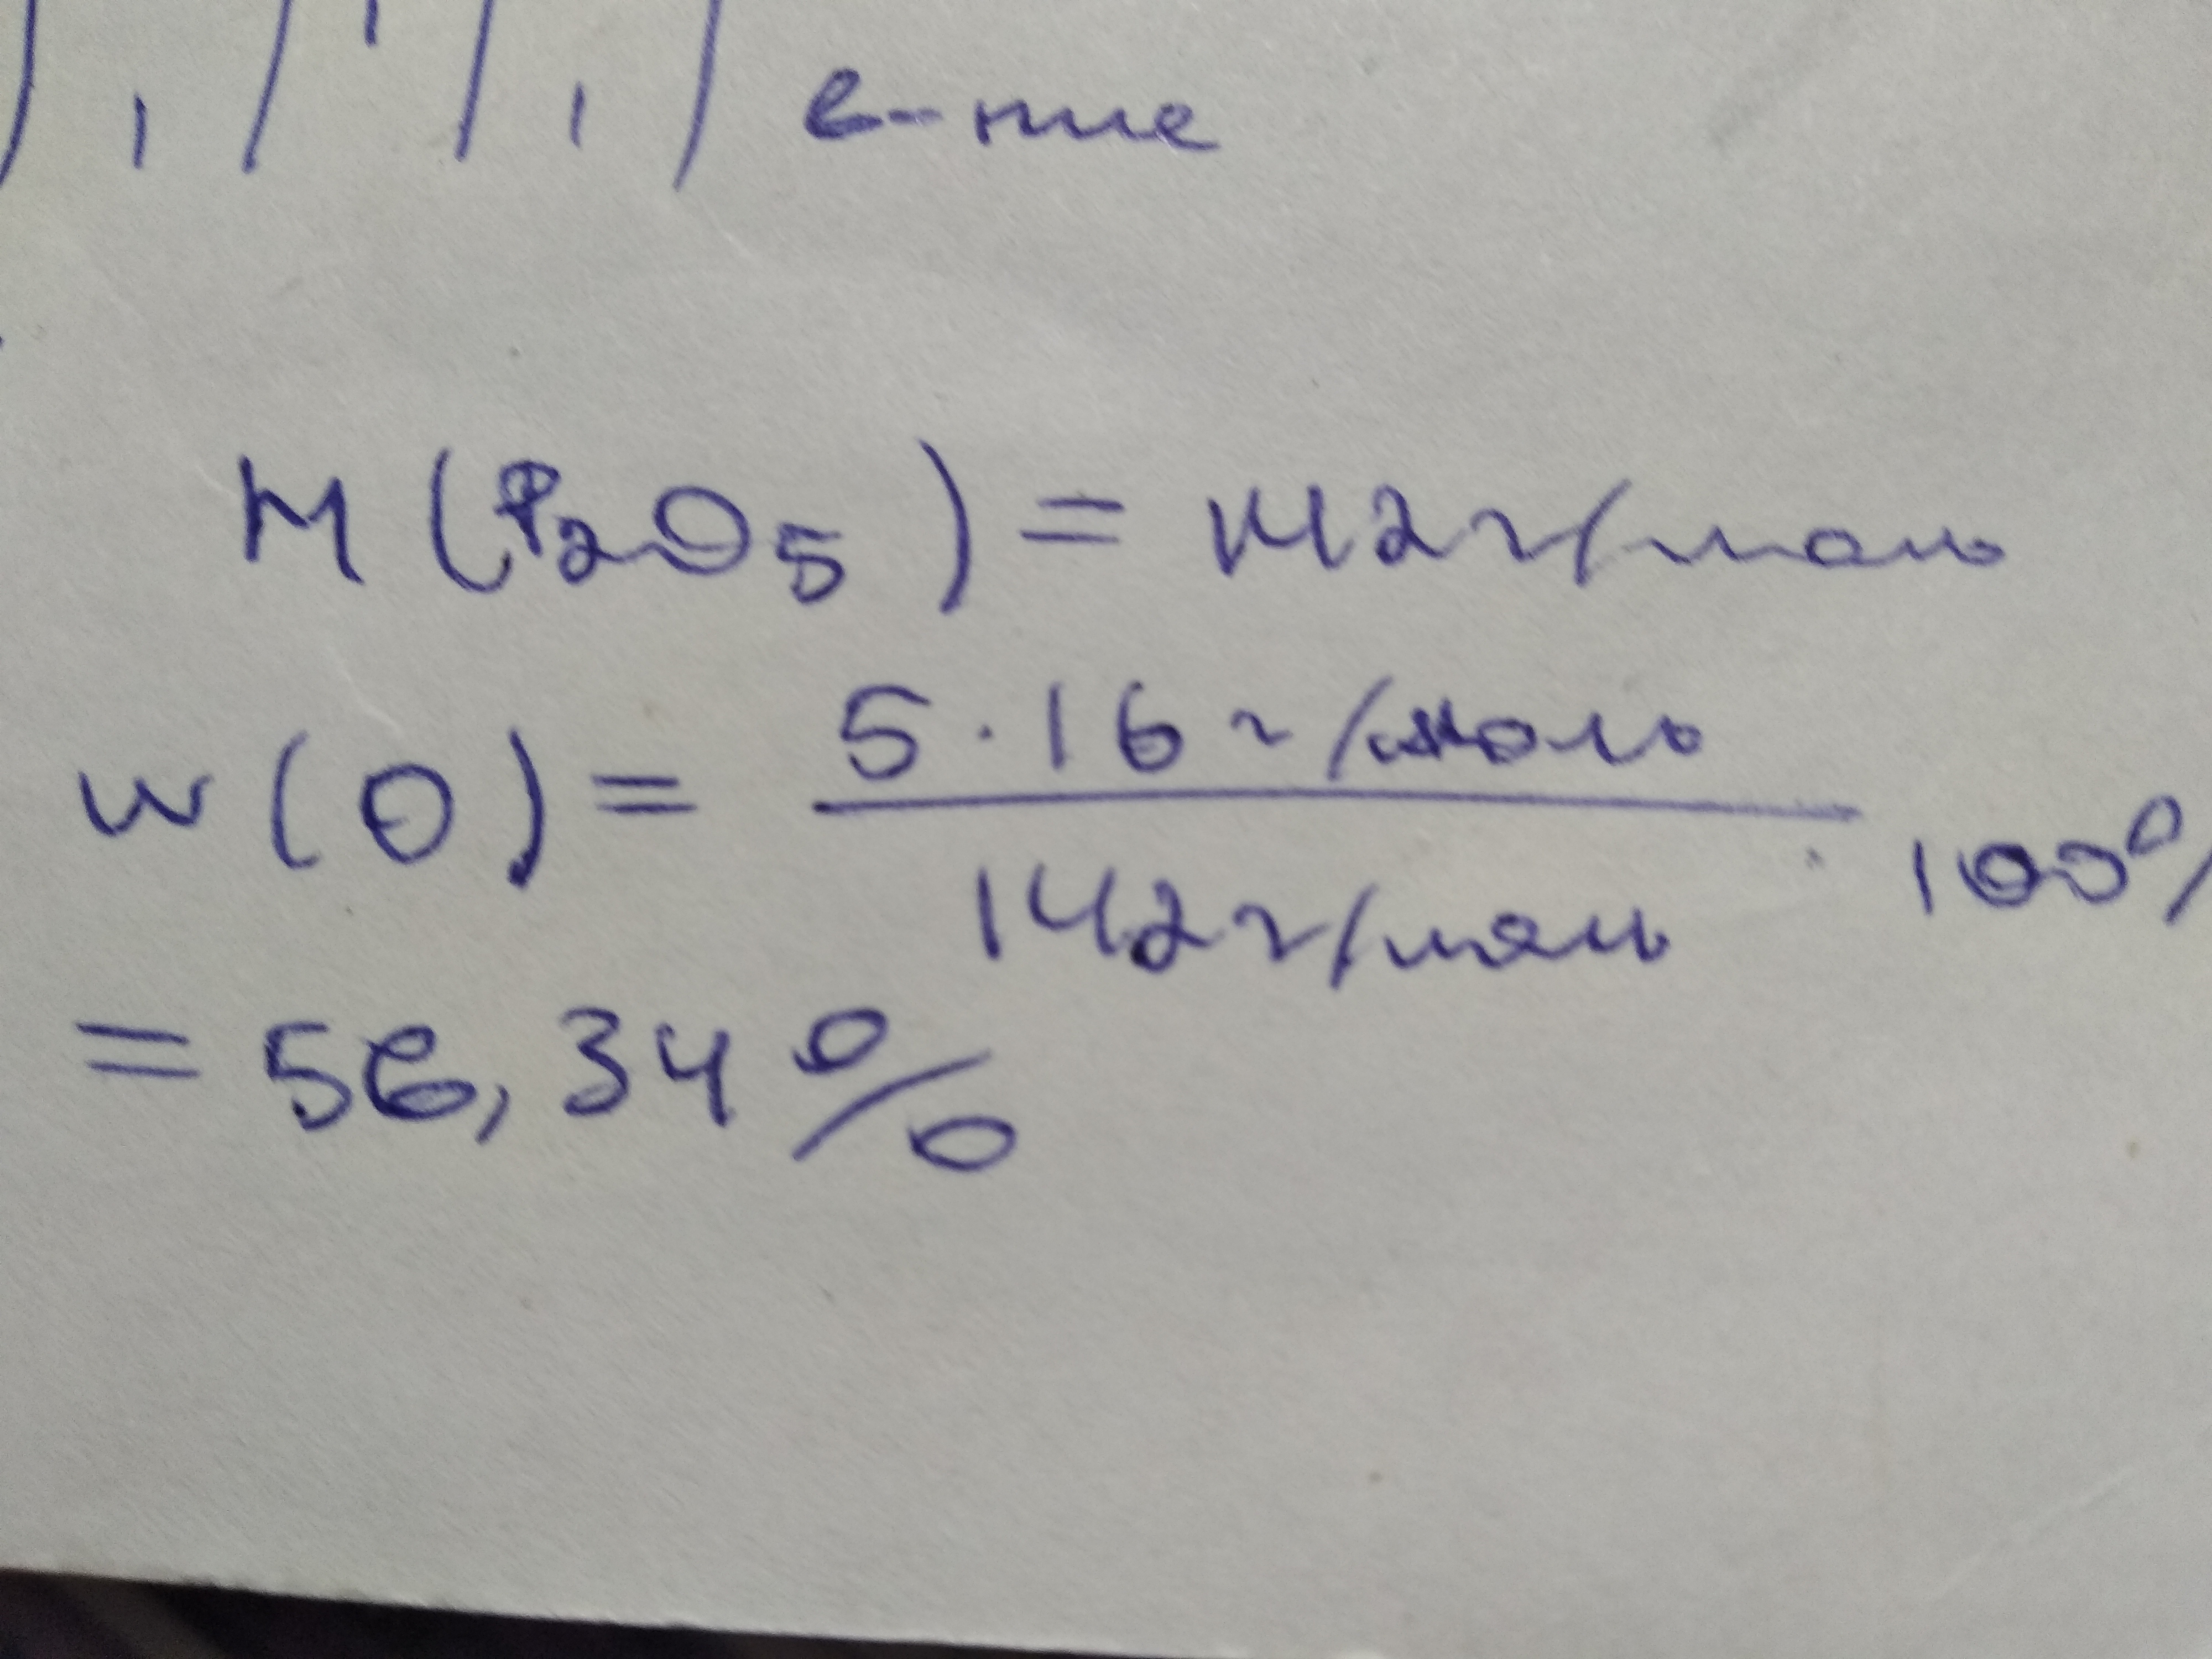 M (P₂O₅) = 142 г/моль
w (O) = 5·16 г/моль / 142 г/моль · 100%
= 56,34 %